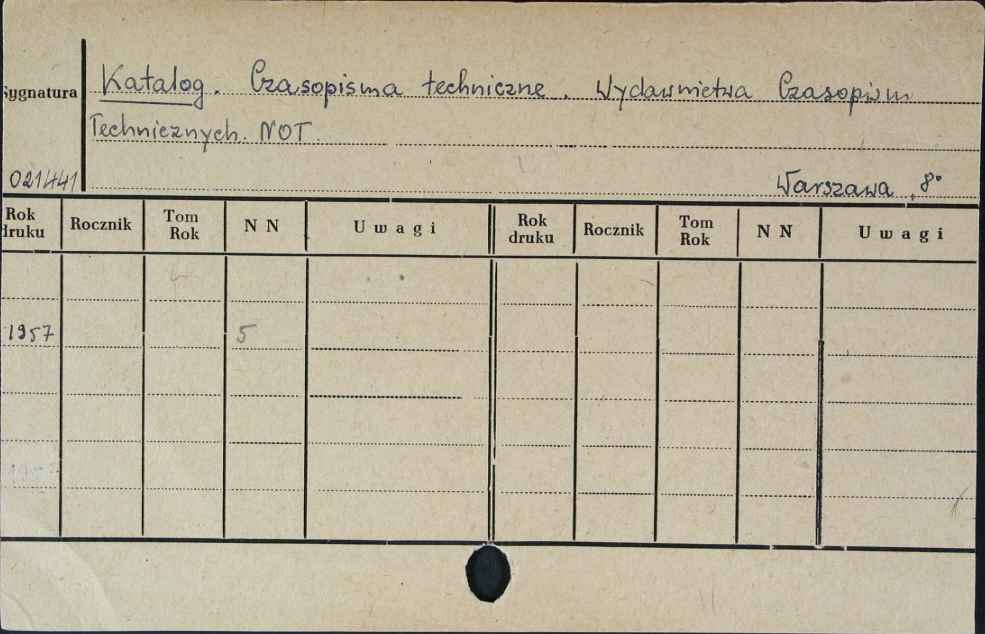 Sygnatura Katalog. Czasopisma techniczne. Wydawnictwa Czasopism
Technicznych. NOT.
021441 Warszawa, 8°
Rok druku Rocznik Tom Rok N N Uwagi Rok druku Rocznik Tom Rok N N Uwagi
1957 5